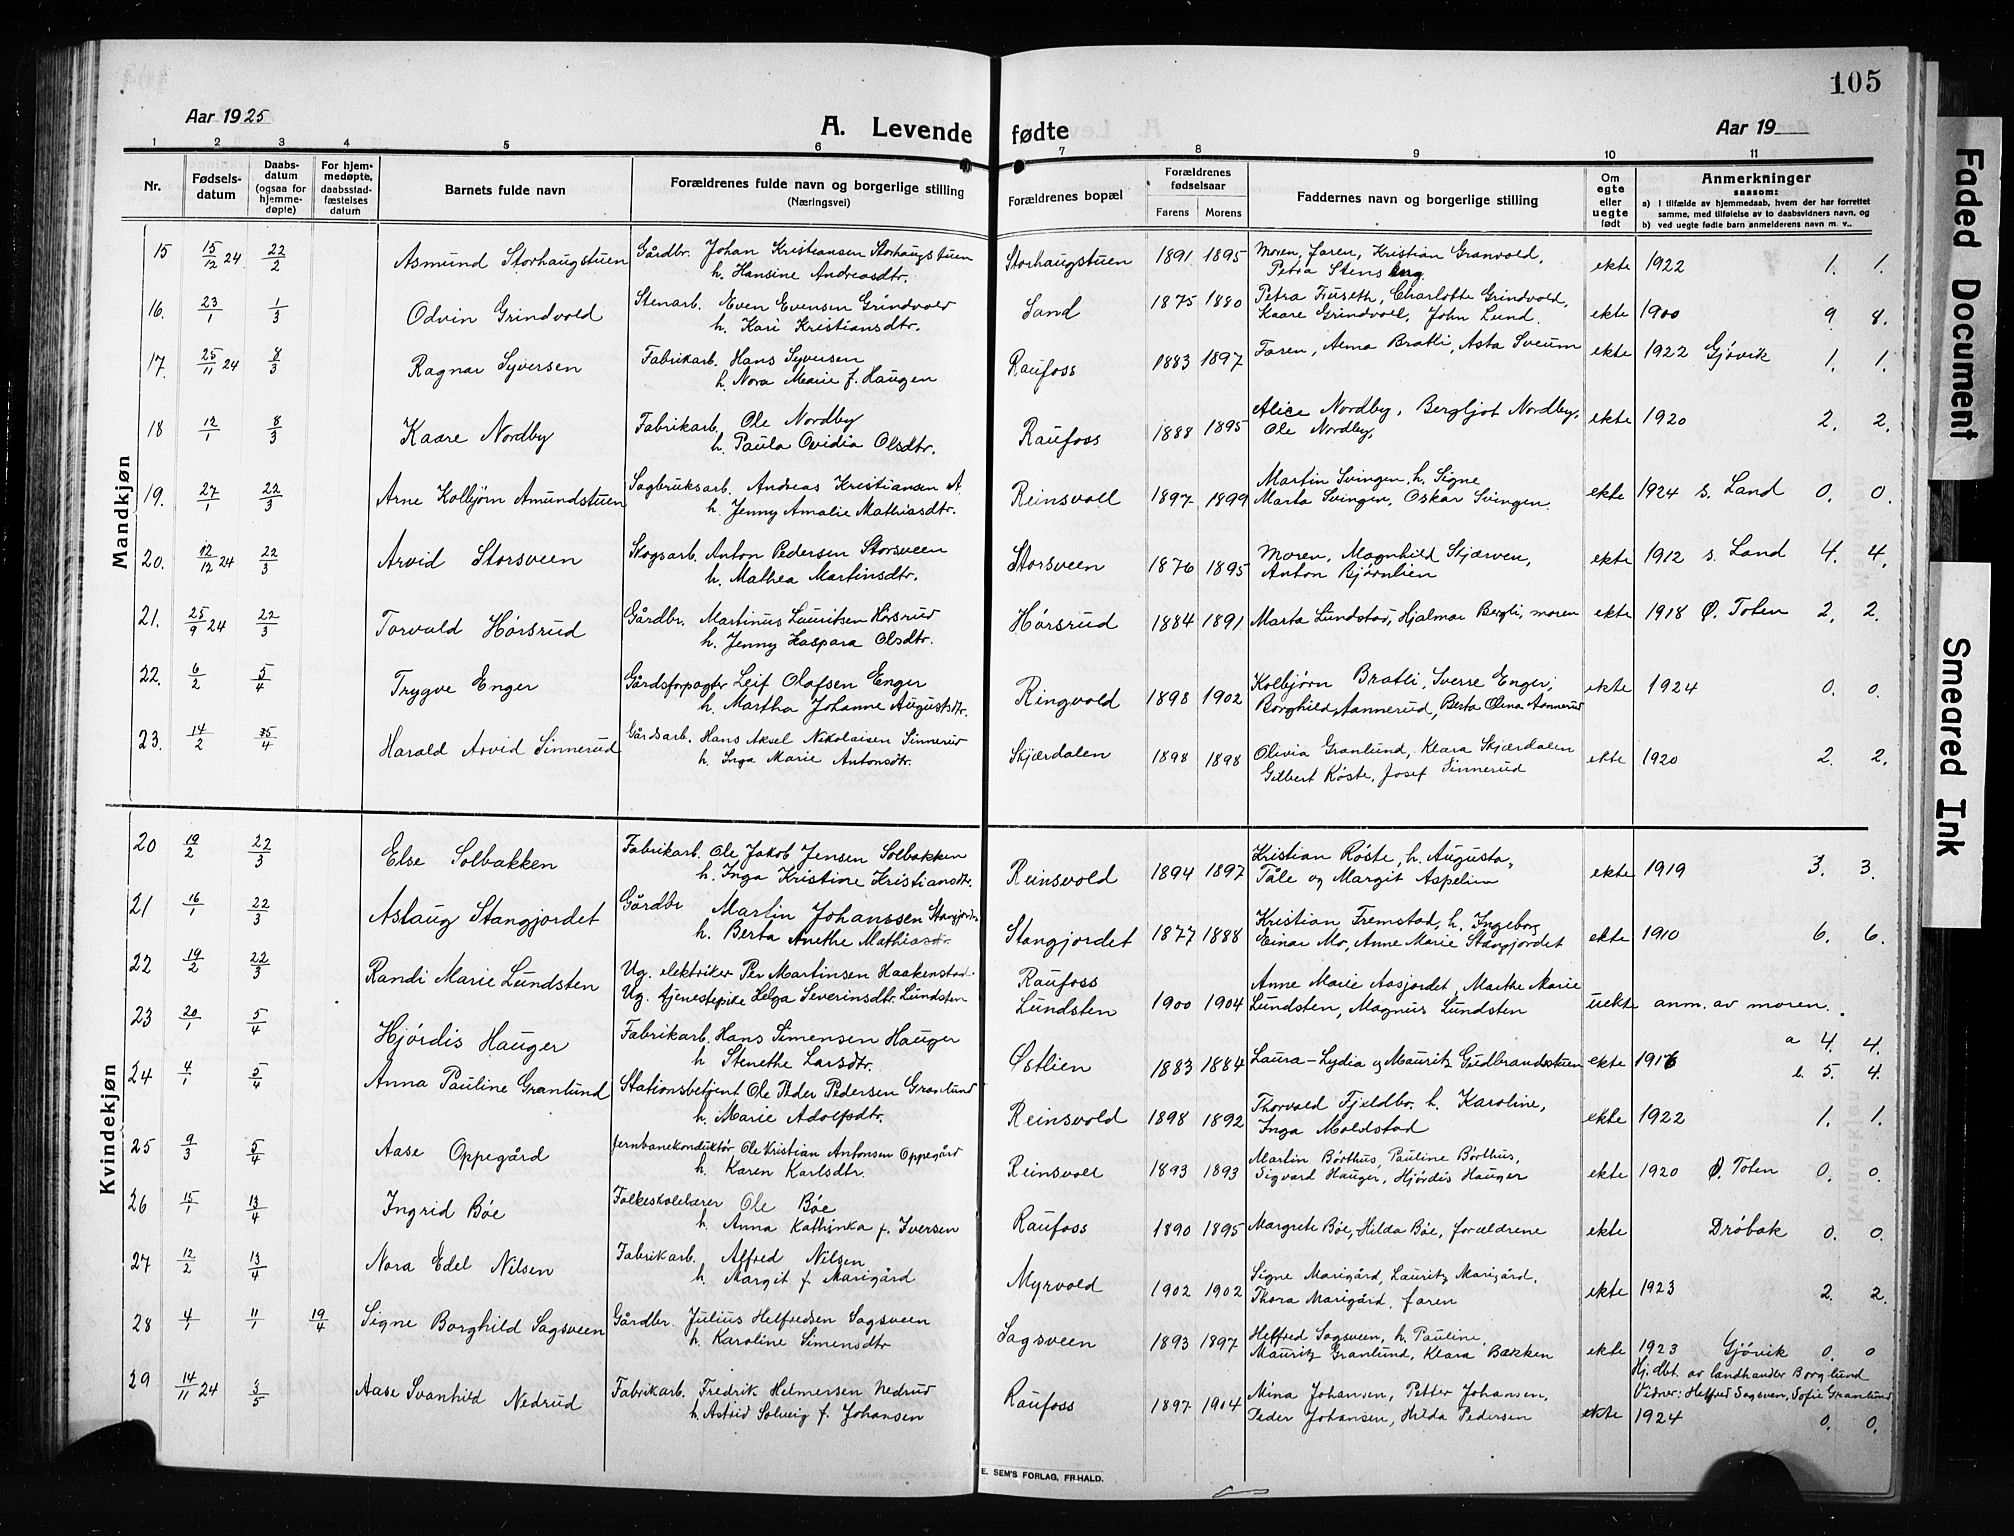 105
Aar 1925
A. Levende fødte
Aar 19
1 2 3 4 5 6 7 8 9 10 11
Nr.
Fødselsdatum
Daabsdatum (ogsaa for hjemmedøpte)
For hjemmedøpte, daabsstadfæstelses datum
Barnets fulde navn
Forældrenes fulde navn og borgerlige stilling
(Næringsvei)
Forældrenes bopæl
Forældrenes fødselsaar
Farens Morens
Faddernes navn og borgerlige stilling
Om egte eller uegte født
Anmerkninger
saasom:
a) I tilfælde av hjemmedaab, hvem der har forrettet
samme, med tilføielse av to daabsvidners navn, og
b) ved uegte fødte barn anmelderens navn m. v.
Mandkjøn
15 15/12 24 22/2 Asmund Storhaugstuen Gårdbr. Johan Kristiansen Storhaugstuen Storhaugstuen 1891 1895 Moren, faren, Kristian Granvold, ekte 1922 1. 1.
h. Hansine Andreasdtr. Petra Stensberg
16. 23/1 1/3 Odvin Grindvold Stenarb. Even Evensen Grindvold Sand 1875 1880 Petra Fuseth, Charlotte Grindvold, ekte 1900 9 8.
h. Kari Kristiansdtr. Kaare Grindvoll, John Lund.
17. 25/11 24 8/3 Ragnar Syversen Fabrikarb. Hans Syversen Raufoss 1883 1897 Faren, Alma Bratli, Asta Sveum ekte 1922 Gjøvik 1. 1.
h. Nora Marie f. Haugen
18 12/1 8/3 Kaare Nordby Fabrikarb. Ole Nordby Raufoss 1888 1895 Alice Nordby, Bergljot Nordby, ekte 1920 2. 2.
h. Paula Ovidia Olsdtr. Ole Nordby,
19. 27/1 22/3 Arne Kolbjørn Amundstuen Sagbruksarb. Andreas Kristiansen A. Reinsvoll 1897 1899 Martin Svingen, h. Signe ekte 1924 S. Land 0. 0.
h. Jenny Amalie Mathiasdtr. Marta Svingen, Oskar Svingen
20. 12/12 24 22/3 Arvid Storsveen Skogsarb. Anton Pedersen Storsveen Storsveen 1876 1895 Moren, Magnhild Skjærven, ekte 1912 S. Land 4. 4.
h. Mathea Martinsdtr. Anton Bjørnlien
21. 25/9 24 22/3 Torvald Hørsrud Gårdbr. Martinus Lauritsen Hørsrud Hørsrud 1884 1891 Marta Lundstad, Hjalmar Bergli, moren ekte 1918 Ø. Toten 2. 2.
h. Jenny Kaspara Olsdtr.
22. 6/2 5/4 Trygve Enger Gårdsforpagter Leif Olafsen Enger Ringvold 1898 1902 Kolbjørn Bratli, Sverre Enger, ekte 1924 0. 0.
h. Martha Johanne Augustsdtr. Borghild Aannerud, Berta Olina Aannerud
23. 14/2 5/4 Harald Arvid Sinnerud Gårdsarb. Hans Aksel Nikolaisen Sinnerud Skjærdalen 1898 1898 Olivia Granlund, Klara Skjærdalen ekte 1920 2. 2.
h. Inga Marie Antonsdtr. Gilbert Røste, Josef Sinnerud
Kvindekjøn
20 19/2 22/3 Else Solbakken Fabrikarb. Ole Jakob Jensen Solbakken Reinsvold 1894 1897 Kristian Røste, h. Augusta, ekte 1919 3. 3.
h. Inga Kristine Kristiansdtr. Tåle og Margit Aspelien
21 16/1 22/3 Aslaug Stangjordet Gårdbr Martin Johanssen Stangjordet Stangjordet 1877 1888 Kristian Fremstad, h. Ingeborg ekte 1910 6. 6.
h. Berta Anethe Mathiasdtr. Einar Mo, Anne Marie Stangjordet
22 19/2 22/3 Randi Marie Lundsten Ug. elektriker Per Martinsen Haakenstad. Raufoss Anne Marie Aasjordet, Marthe Marie
Ug. tjenestepike Helga Severinsdtr. Lundsten Lundsten 1900 1904 Lundsten, Magnus Lundsten uekte anm. av moren.
23 20/1 5/4 Hjørdis Hauger Fabrikarb. Hans Simensen Hauger Østlien 1883 1884 Laura-Lydia og Mauritz Gudbrandsstuen ekte 1916 a 4. 4.
h Stenethe Larsdtr. b. 5. 4.
24 4/1 5/4 Anna Pauline Granlund Stationsbetjent Ole Peder Pedersen Granlund Reinsvold 1898 1892 Thorvald Fjeldbo, h. Karoline, ekte 1922 1. 1.
h. Marie Adolfsdtr. Inga Moldstad
25 9/3 5/4 Aase Oppegård Jernbanekonduktør Ole Kristian Antonsen Oppegård Reinsvoll 1893 1893 Martin Børthus, Pauline Børthus, ekte 1920 Ø. Toten 0. 0.
h. Karen Karlsdtr. Sigvard Hauger, Hjørdis Hauger
26 15/1 13/4 Ingrid Bøe Folkeskolelærer Ole Bøe Raufoss 1890 1895 Margrete Bøe, Hilda Bøe, forældrene ekte Drøbak 0. 0.
h. Anna Kathinka f. Iversen
27 12/2 13/4 Nora Edel Nilsen Fabrikarb. Alfred Nilsen Myrvold 1902 1902 Signe Marigård, Lauritz Marigård, ekte 1923 2. 2.
h. Margit f. Marigård Thora Marigård, faren
28 4/1 11/1 19/4 Signe Borghild Sagsveen Gårdbr. Julius Helfredsen Sagsveen Sagsveen 1893 1897 Helfred Sagsveen, h. Pauline, ekte 1923 Gjøvik 0. 0
h. Karoline Simensdtr Mauritz Granlund, Klara Bakken
Hj. dbt. av landhandler Borglund
Vidner: Helfred Sagsven, Sofie Granlund
29 14/11 24 3/5 Aase Svanhild Nedrud Fabrikarb. Fredrik Helmersen Nedrud Raufoss 1897 1904 Mina Johansen, Petter Johansen, ekte 1924 0. 0.
h. Astrid Solveig f. Johansen Peder Johansen, Hilda Pedersen
E. SEM'S FORLAG, FR-HALD.
Faded Document
Smeared Ink